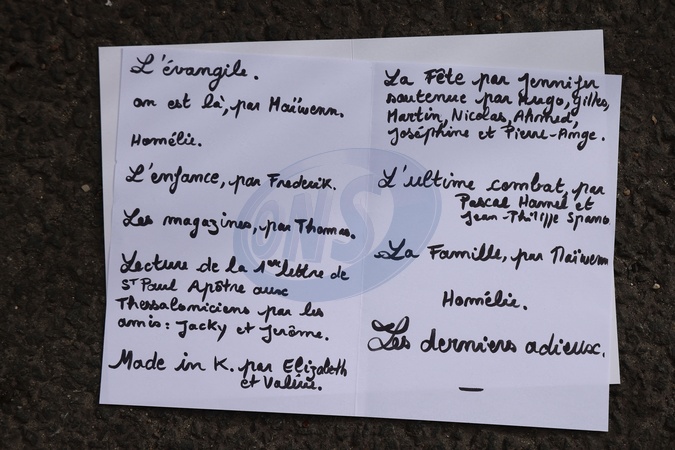 L'évangile.
on est là, par Maïwenn.
Homélie.
L'enfance, par Frederik.
Les magazines, par Thomas.
Lecture de la 1ere lettre de
St Paul Apôtre aux
Thessaloniciens par les
amis : Jacky et Jérôme.
Made in K. par Elizabeth
et Valérie.
La Fête par Jennifer
soutenue par Hugo, Gilles,
Martin, Nicolas, Ahmed,
Joséphine et Pierre-Ange.
L'ultime combat, par
Pascal Hamel et
Jean-Philippe
La Famille, par Maïwenn
Homélie.
Les derniers adieux.
ONS